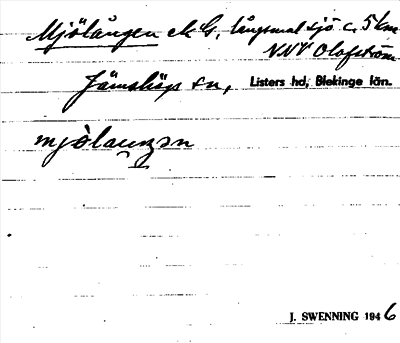 Mjölången ek G, långsmal sjö c. 5 km
VNV Olofström
Jämshögs sn, Listers hd, Blekinge län.
mjölaŋən
J. SWENNING 1946